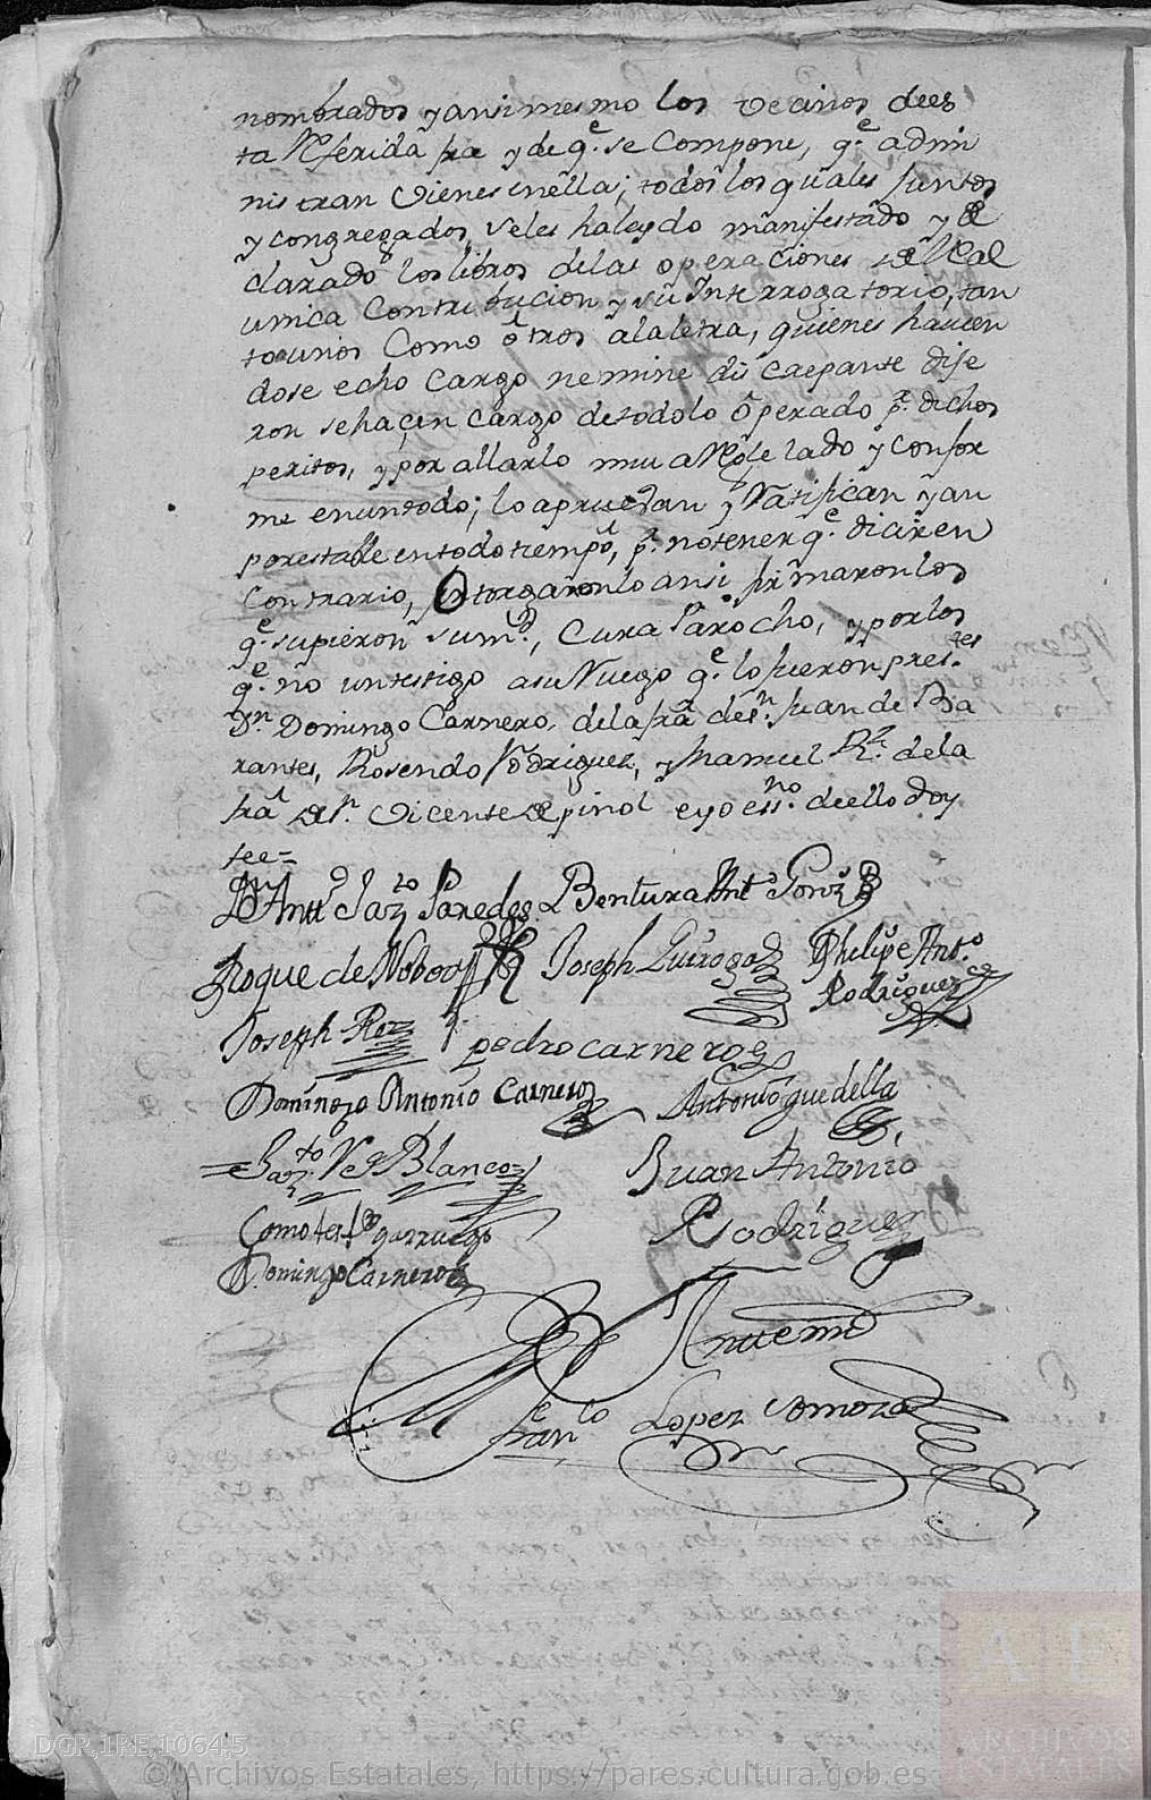 nombrados y ansimesmo los vecinos de es
ta Referida fra y de q.e se Compone, q.e admi
nistran Vienes en ella; todos los quales juntos
y congregados, se les ha leydo manifestado y de
clarado los libros de las operaciones de Real
unica Contribucion y su Interrogatorio, tan
to unos Como otros a la letra, quienes havien
dose echo Cargo nemine discrepante dije
ron se haçen Cargo de todo lo operado p.r dichos
peritos, y por allarlo mui aReglado y confor
me en un todo; lo apruevan y Ratifican y an
por estable en todo tiempo, p.r no tener q.e dicir en
Contrario, otorgaronlo ansi firmaron los
q.e supieron su m.d, Cura Parocho, y por los
q.e no un testigo a su Ruego q.e lo fueron pres.tes
D.n Domingo Carnero, de la fra de S.n Juan de Ba
rantes, Rosendo Rodriguez, y Manuel R.z de la
fra de S.n Vicente de pinol e yo ess.no de ello doy
fee=
D.n Antt.o Saz Paredes Bentura Ant.o Gonz
Roque de Noboa Joseph Quiroga Phelipe Ant.o
Rodriguez
Joseph Roz pedro carnero
Domingo Antonio Carnero Antonio guedella
Blanco Juan Antonio
Como tes.o y a rruego Rodriguez
Domingo Carnero
Antte mi
Fran.co Lopez Somoza
DGR,1RE,1064,5
© Archivos Estatales, https://pares.cultura.gob.es
AE
ARCHIVOS
ESTATALES